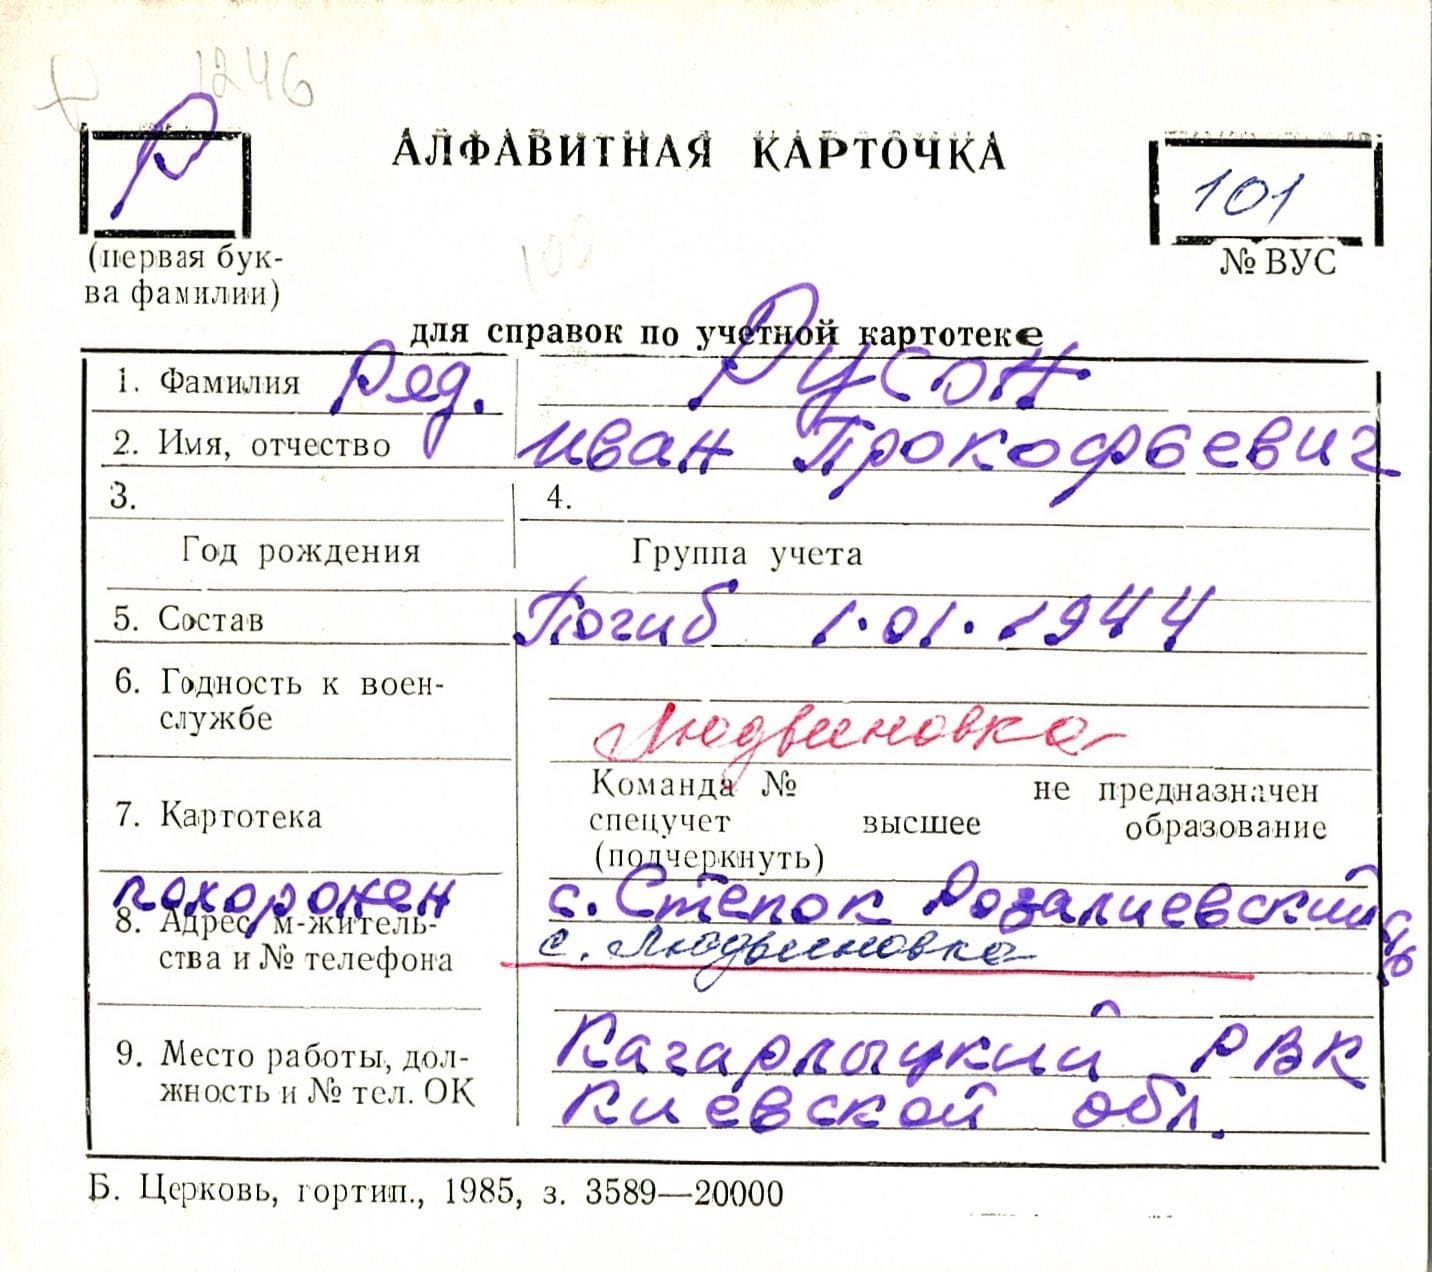 1246
Р
АЛФАВИТНАЯ КАРТОЧКА
101
(первая бук-
ва фамилии)
№ ВУС
100
для справок по учетной картотеке
1. Фамилия Ряд. Русон
2. Имя, отчество Иван Прокофьевич
3. 4.
Год рождения Группа учета
5. Состав Погиб 1.01.1944
6. Годность к воен-
службе
Людвиновка
Команда № не предназначен
7. Картотека
спецучет высшее образование
(подчеркнуть)
похоронен с. Степок Розалиевский
8. Адрес м-житель-
ства и № телефона
с. Людвиновка
9. Место работы, дол-
жность и № тел. ОК
Кагарлыцкий РВК
Киевской обл.
Б. Церковь, гортип., 1985, з. 3589—20000